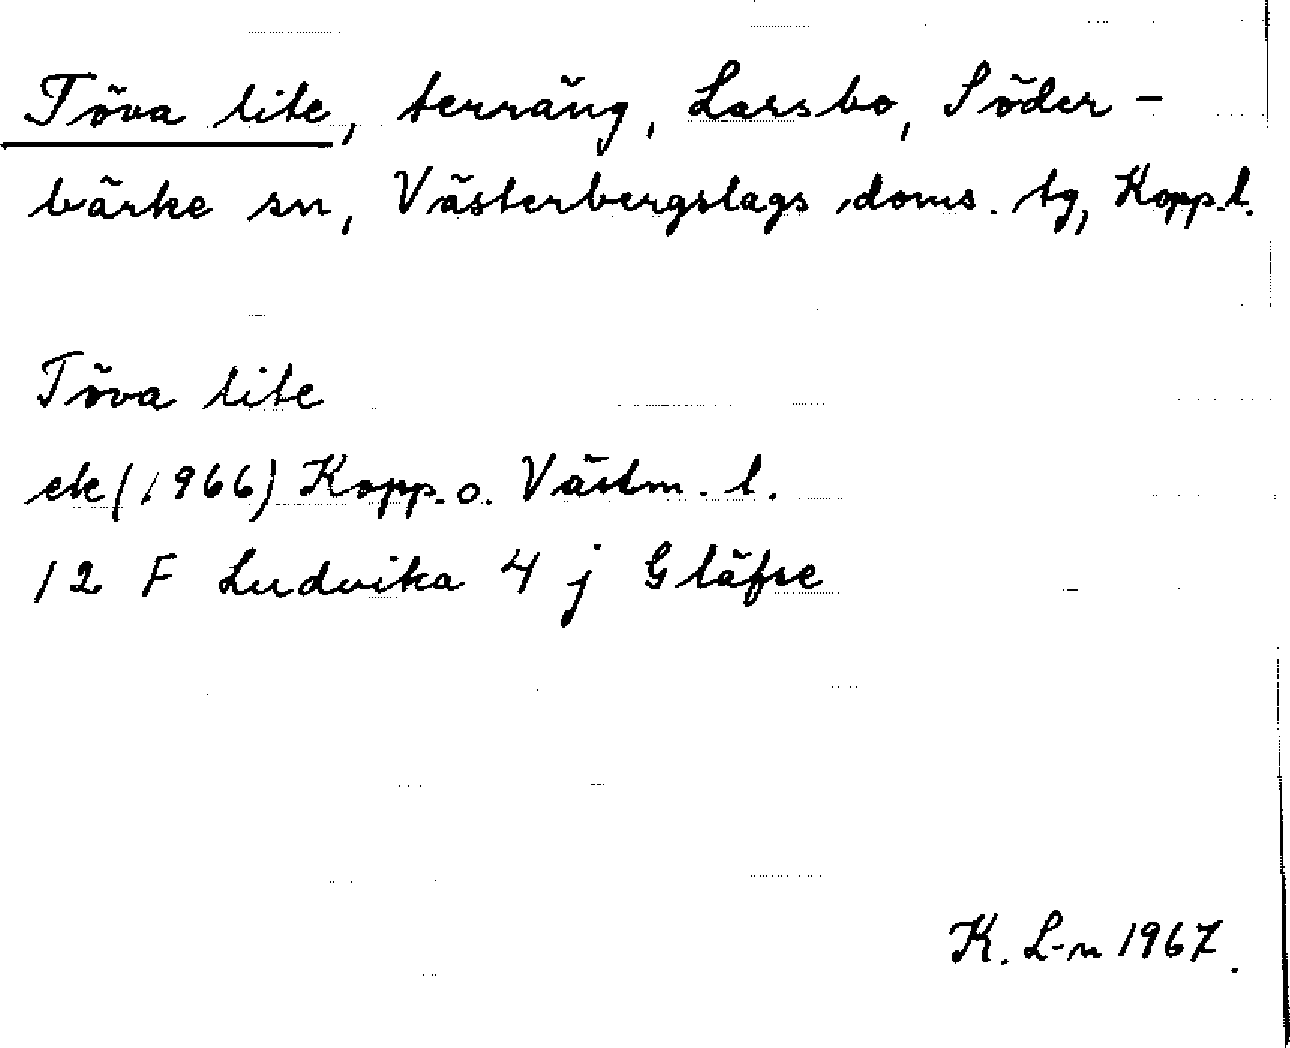 Töva lite, terräng, Larsbo, Söder-
bärke sn, Västerbergslags doms. tg, Kopp. l.
Töva lite
ek (1966) Kopp. o. Västm. l.
12 F Ludvika 4 j Gläfse
K. L-n 1967.